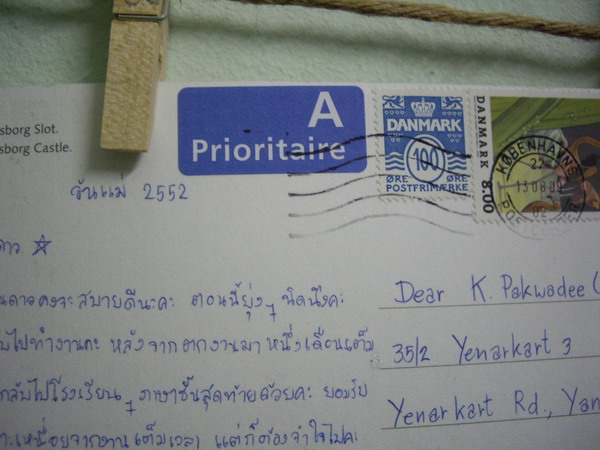 sborg Slot.
sborg Castle.
A
Prioritaire
DANMARK
100
ØRE ØRE
POSTFRIMÆRKE
DANMARK 8.00
KØBENHAVNS
22
13.08.09
02
วันแม่ 2552
ดาว
ดาวคงจะ สบายดีนะคะ ตอนนี้ยุ่งๆ นิดนึงคะ
ไปทำงานคะ หลังจาก ตกงานมา หนึ่งเดือนเต็ม
กลับไปโรงเรียนๆ ภาษาชั้นสุดท้ายด้วยคะ ยอมรับ
เหนื่อยจากงานเต็มเวลา แต่ก็ต้องจำใจไปคะ
Dear K. Pakwadee (
35/2 Yenarkart 3
Yenarkart Rd., Yan